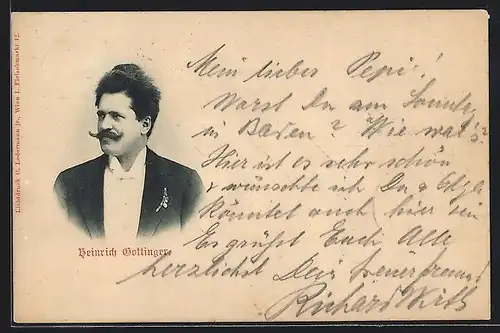 Lichtdruck C. Ledermann jr., Wien I. Fleischmarkt 12.
Heinrich Gottinger.
Mein lieber Pepi!
Warst Du am Sonntag
in Baden? Wie war's?
Hier ist es sehr schön
& wünschte ich Du &
könntet auch hier sein
Es grüßt Euch Alle
herzlichst Dein treuer Freund
Richard